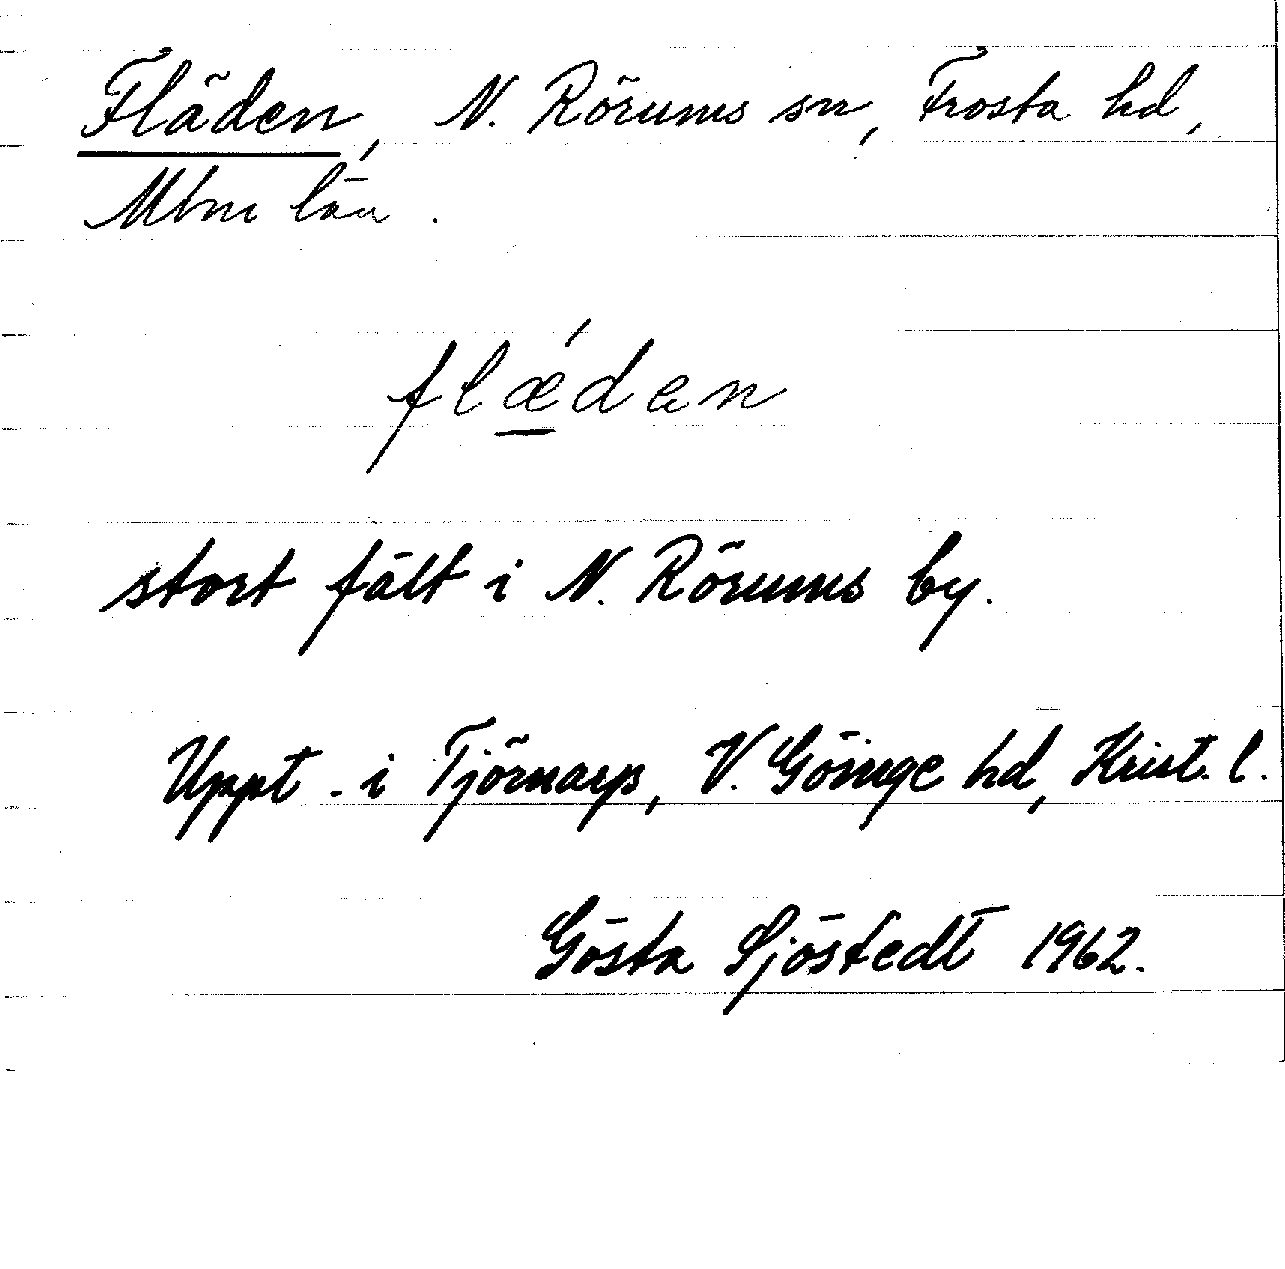 Fläden, N. Rörums sn, Frosta hd,
Mlm län.
flǽ̲den
stort fält i N. Rörums by.
Uppt. i Tjörnarp, V. Göinge hd, Krist. l.
Gösta Sjöstedt 1962.